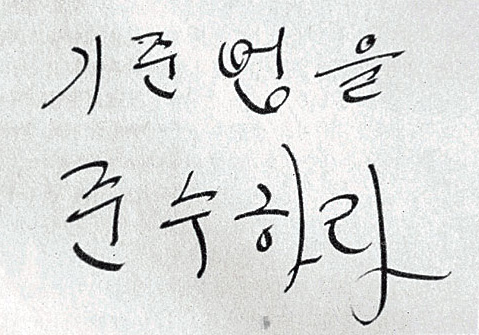 기준법을
준수하라